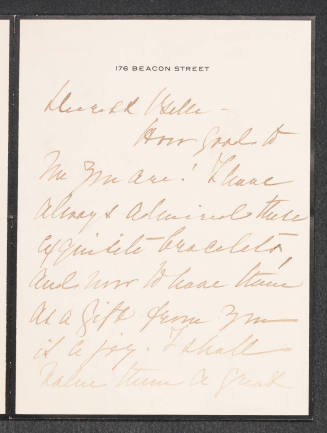 176 BEACON STREET
Dearest Belle -
How good to
me you are! I have
always admired those
exquisite bracelets,
and now to have them
as a gift from you
is a joy. I shall
value them a great